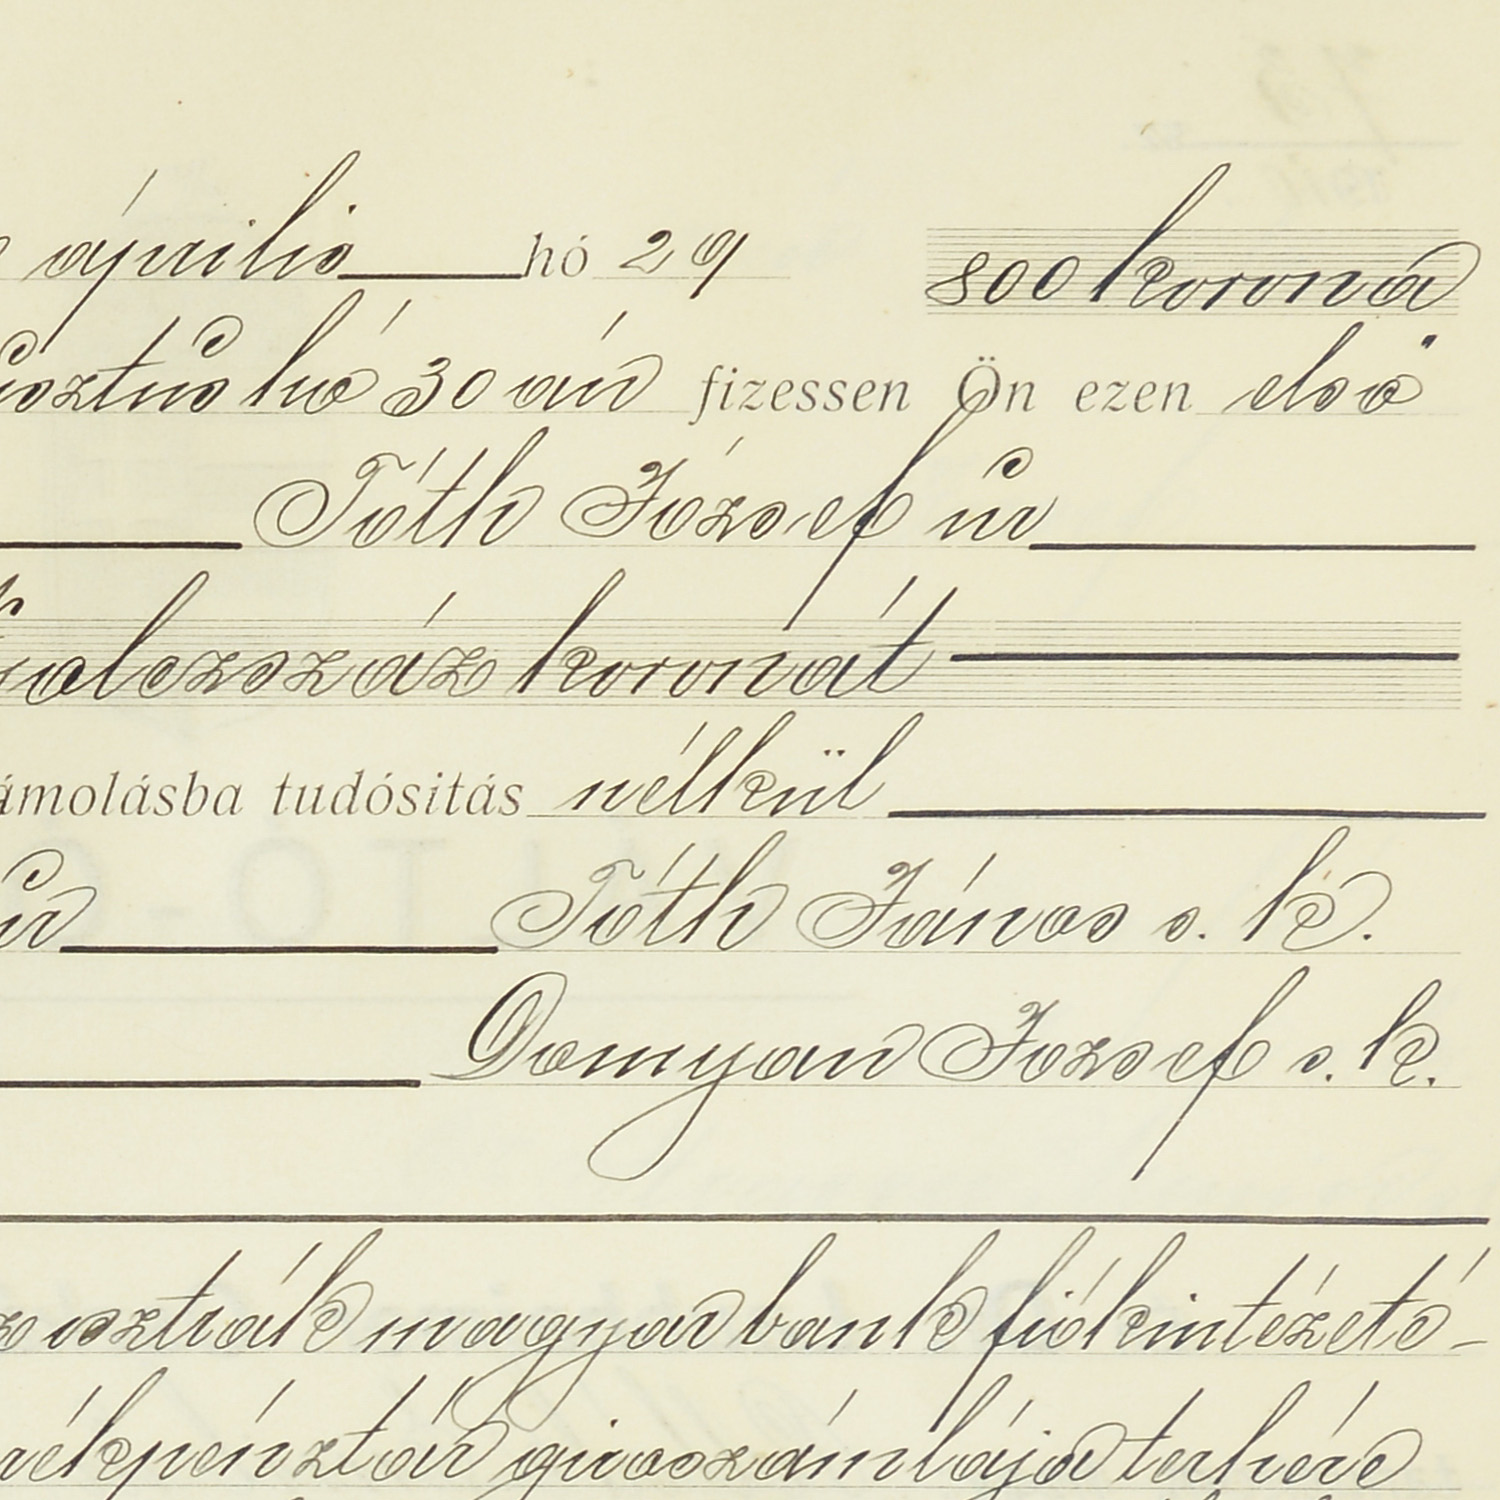 április hó 29 800 korona
usztus hó 30 án fizessen Ön ezen első
Tóth József úr
olczszáz koronát
ámolásba tudósitás nélkül
úr Tóth János s. k.
Domyan Jozsef s. k.
z osztrák magyar bank fiókintézeté-
rékpénztár giroszámlája terhére